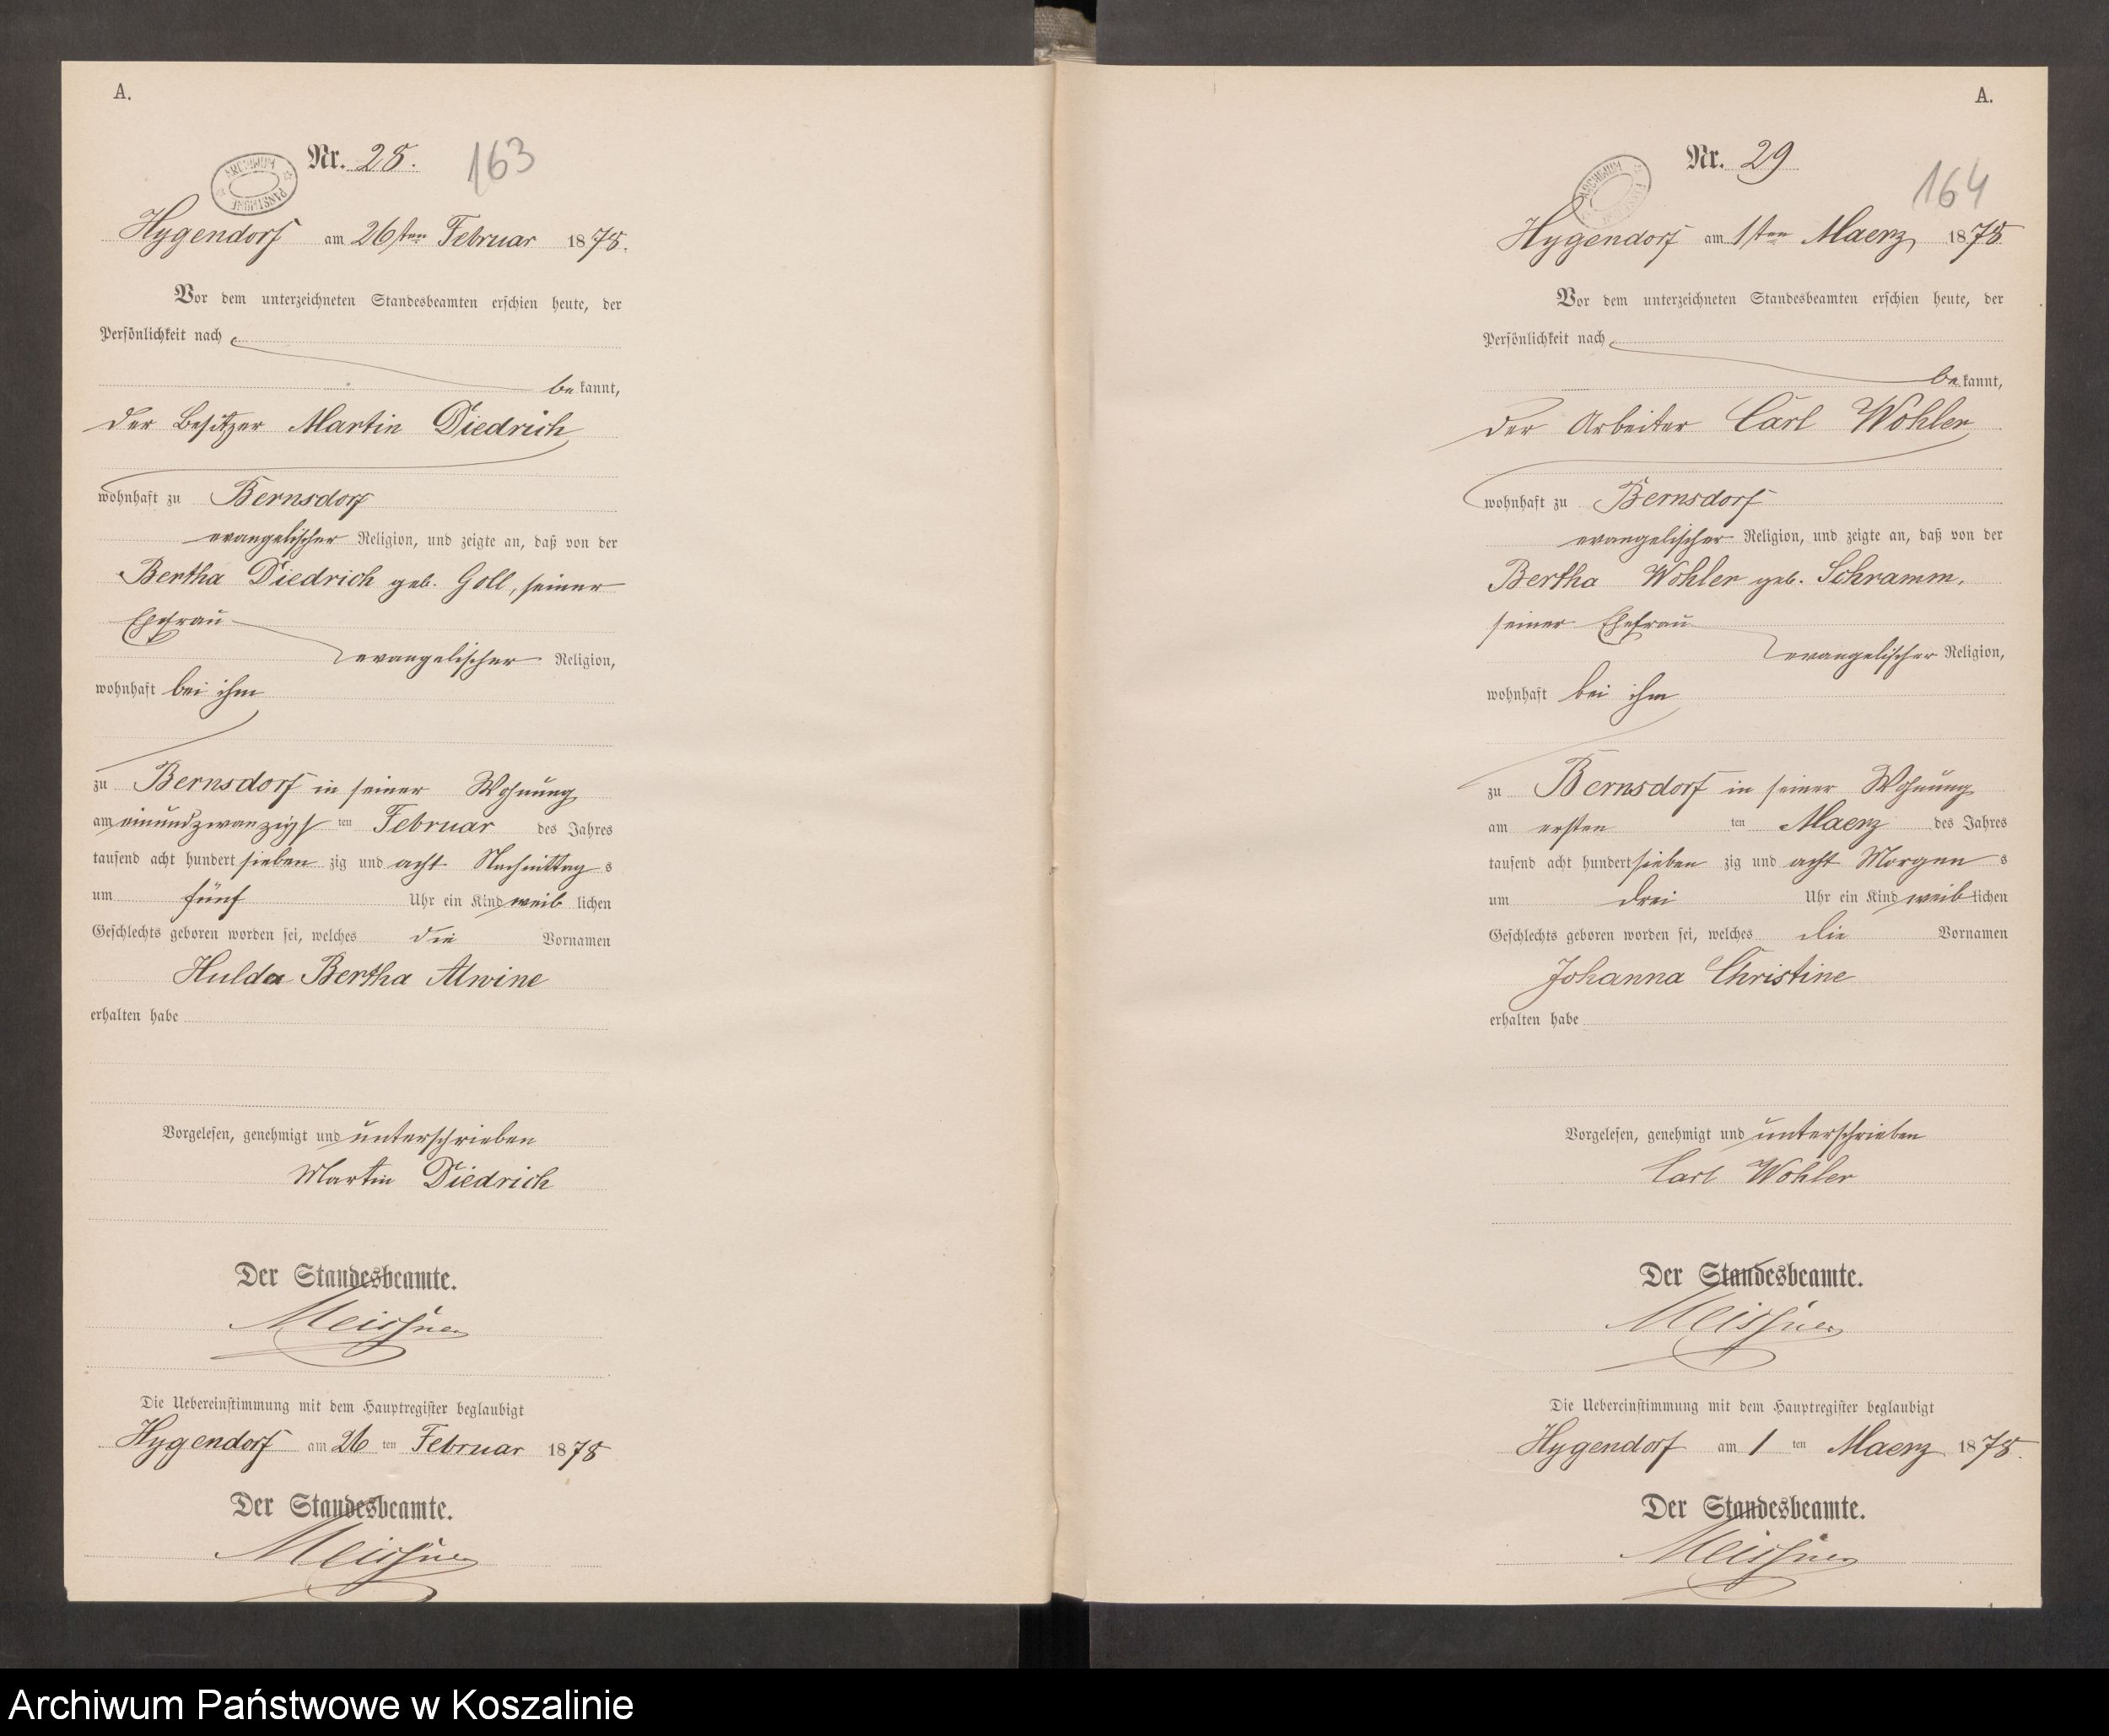 A.
Nr. 28. 163
ARCHIWUM PAŃSTWOWE
Hygendorf am 26sten Februar 1878.
Vor dem unterzeichneten Standesbeamten erschien heute, der
Persönlichkeit nach
bekannt,
der Besitzer Martin Diedrich
wohnhaft zu Bernsdorf
evangelischer Religion, und zeigte an, daß von der
Bertha Diedrich geb. Goll, seiner
Ehefrau
evangelischer Religion,
wohnhaft bei ihm
zu Bernsdorf in seiner Wohnung
am einundzwanzigsten Februar des Jahres
tausend acht hundert siebenzig und acht Nachmittags
um fünf Uhr ein Kind weiblichen
Geschlechts geboren worden sei, welches die Vornamen
Hulda Bertha Alwine
erhalten habe
Vorgelesen, genehmigt und unterschrieben
Martin Diedrich
Der Standesbeamte.
Meissner
Die Uebereinstimmung mit dem Hauptregister beglaubigt
Hygendorf am 26 ten Februar 1878
Der Standesbeamte.
Meissner
A.
Nr. 29
164
Hygendorf am 1sten Maerz 1878
Vor dem unterzeichneten Standesbeamten erschien heute, der
Persönlichkeit nach
bekannt,
der Arbeiter Carl Wohler
wohnhaft zu Bernsdorf
evangelischer Religion, und zeigte an, daß von der
Bertha Wohler geb. Schramm,
seiner Ehefrau
evangelischer Religion,
wohnhaft bei ihm
zu Bernsdorf in seiner Wohnung
am ersten ten Maerz des Jahres
tausend acht hundert siebenzig und acht Morgens
um drei Uhr ein Kind weiblichen
Geschlechts geboren worden sei, welches die Vornamen
Johanna Christine
erhalten habe
Vorgelesen, genehmigt und unterschrieben
Carl Wohler
Der Standesbeamte.
Meissner
Die Uebereinstimmung mit dem Hauptregister beglaubigt
Hygendorf am 1 ten Maerz 1878.
Der Standesbeamte.
Meissner
Archiwum Państwowe w Koszalinie